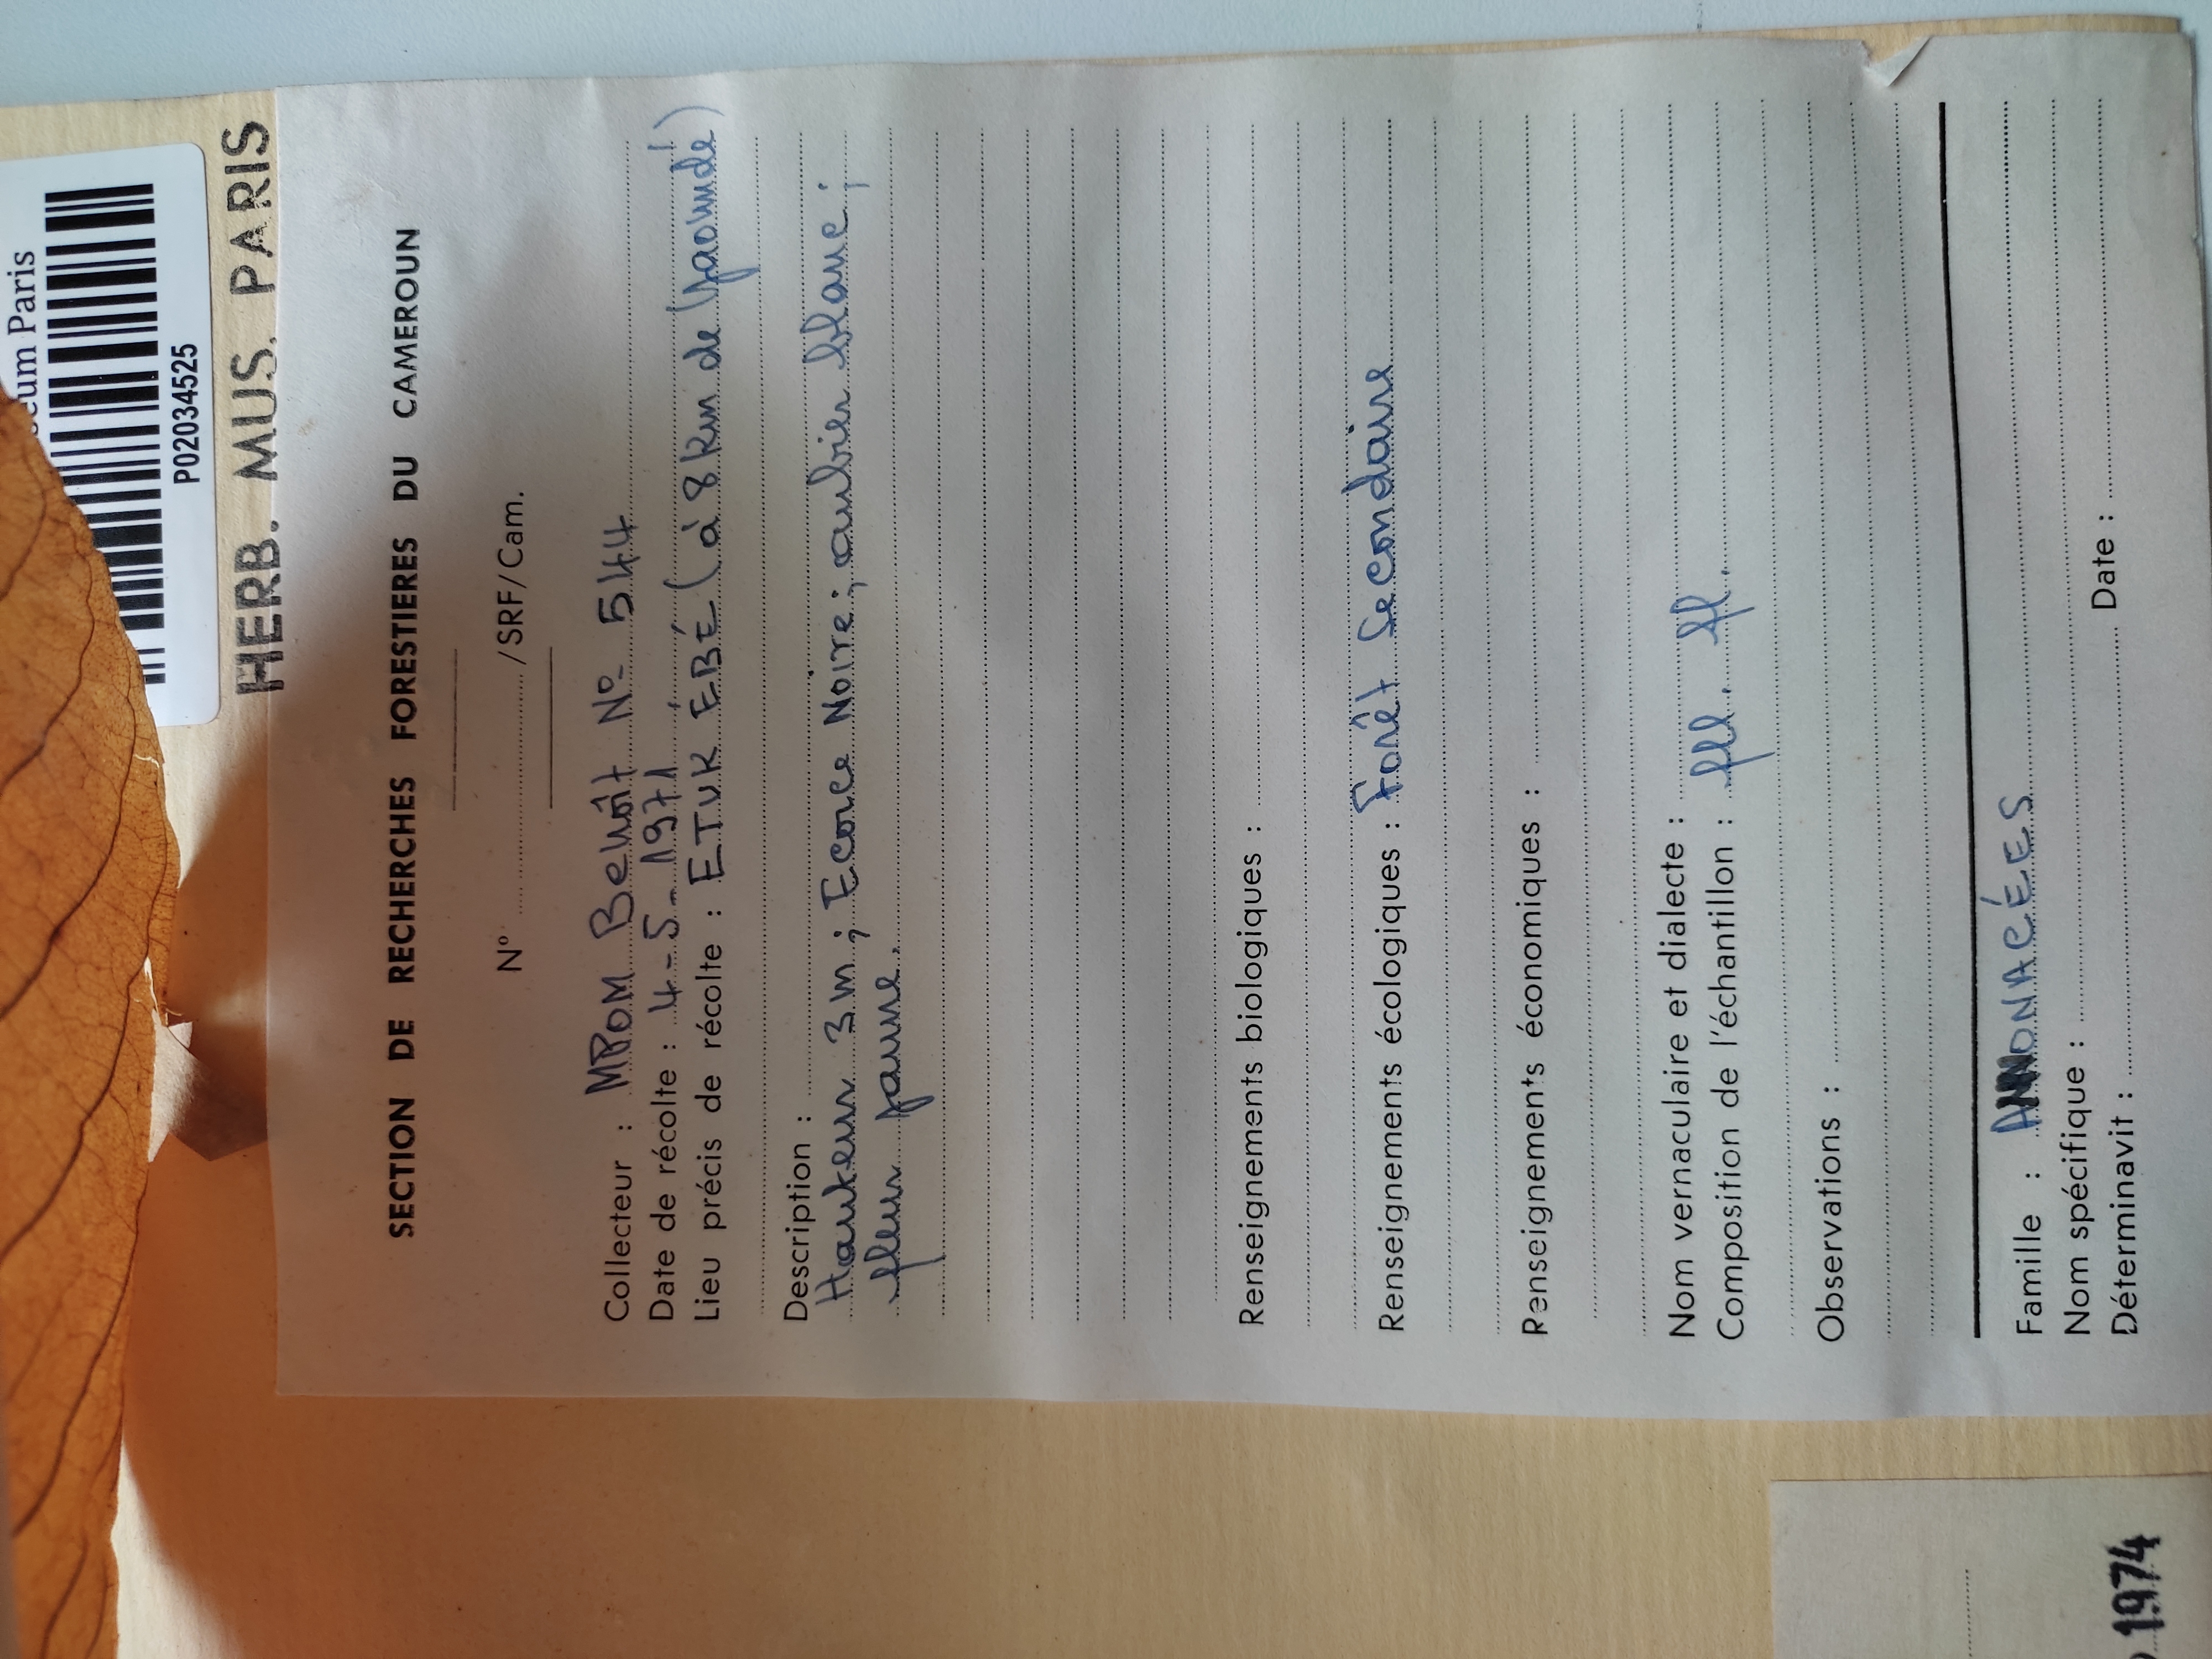 eum Paris
P02034525
HERB. MUS. PARIS
SECTION DE RECHERCHES FORESTIERES DU CAMEROUN
N° /SRF/Cam.
Collecteur : MPOM Benoît N° 544
Date de récolte : 4-5-1971
Lieu précis de récolte : ETUK ÉBÉ (à 8 km de (Yaoundé)
Description :
Hauteur 3 m ; Ecorce Noire ; aubier blanc ;
fleur jaune.
Renseignements biologiques :
Renseignements écologiques : Forêt Secondaire
Renseignements économiques :
Nom vernaculaire et dialecte :
Composition de l'échantillon : fll. fl.
Observations :
Famille : ANNONACÉES
Nom spécifique :
Déterminavit : Date :
1974